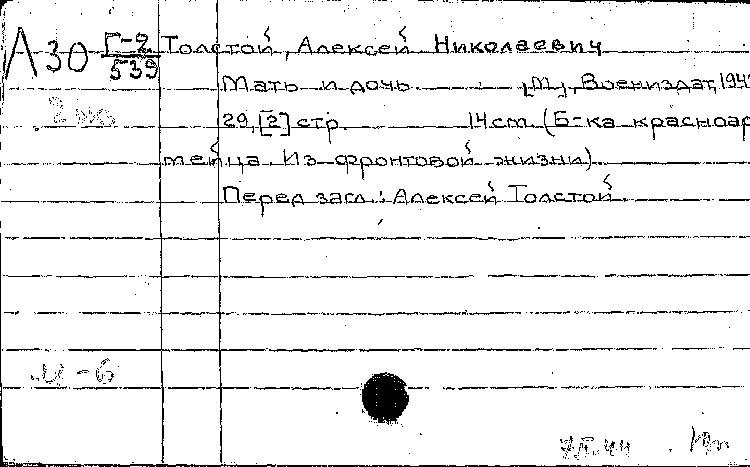 А30 Г-2 Толстой, Алексей Николаевич
539
Мать и дочь [М], Воениздат, 194
29, [2] стр. 14 cm. (Б-ка красноар
мейца. Из фронтовой жизни)
Перед загл.: Алексей Толстой.
И-6